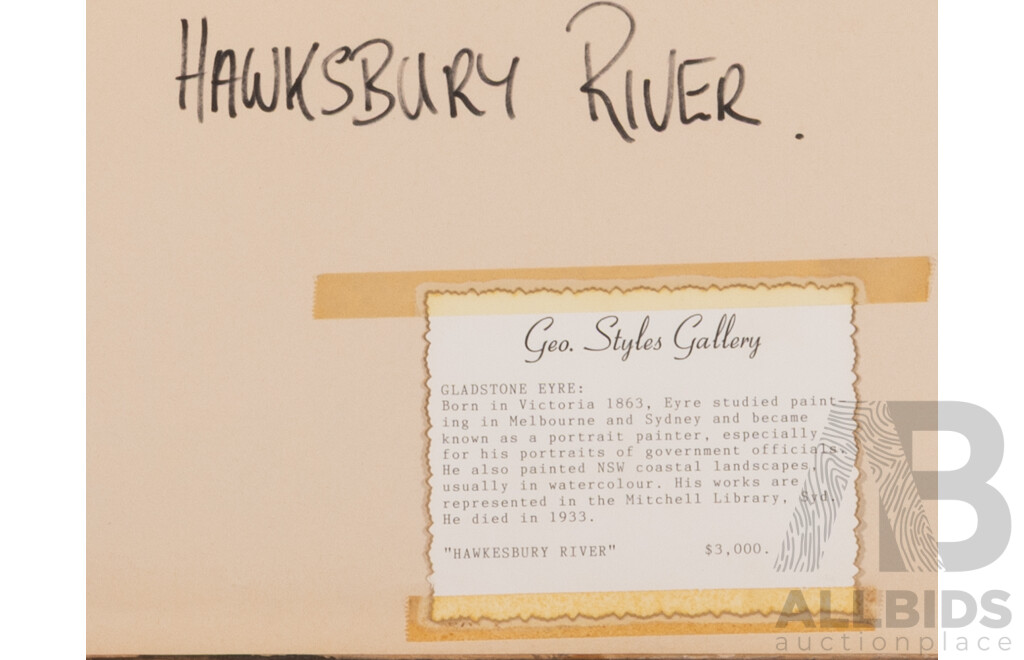 HAWKSBURY RIVER.
Geo. Styles Gallery
GLADSTONE EYRE:
Born in Victoria 1863, Eyre studied paint-
ing in Melbourne and Sydney and became
known as a portrait painter, especially
for his portraits of government officials.
He also painted NSW coastal landscapes,
usually in watercolour. His works are
represented in the Mitchell Library, Syd.
He died in 1933.
"HAWKESBURY RIVER" $3,000.
AB
ALLBIDS
auctionplace